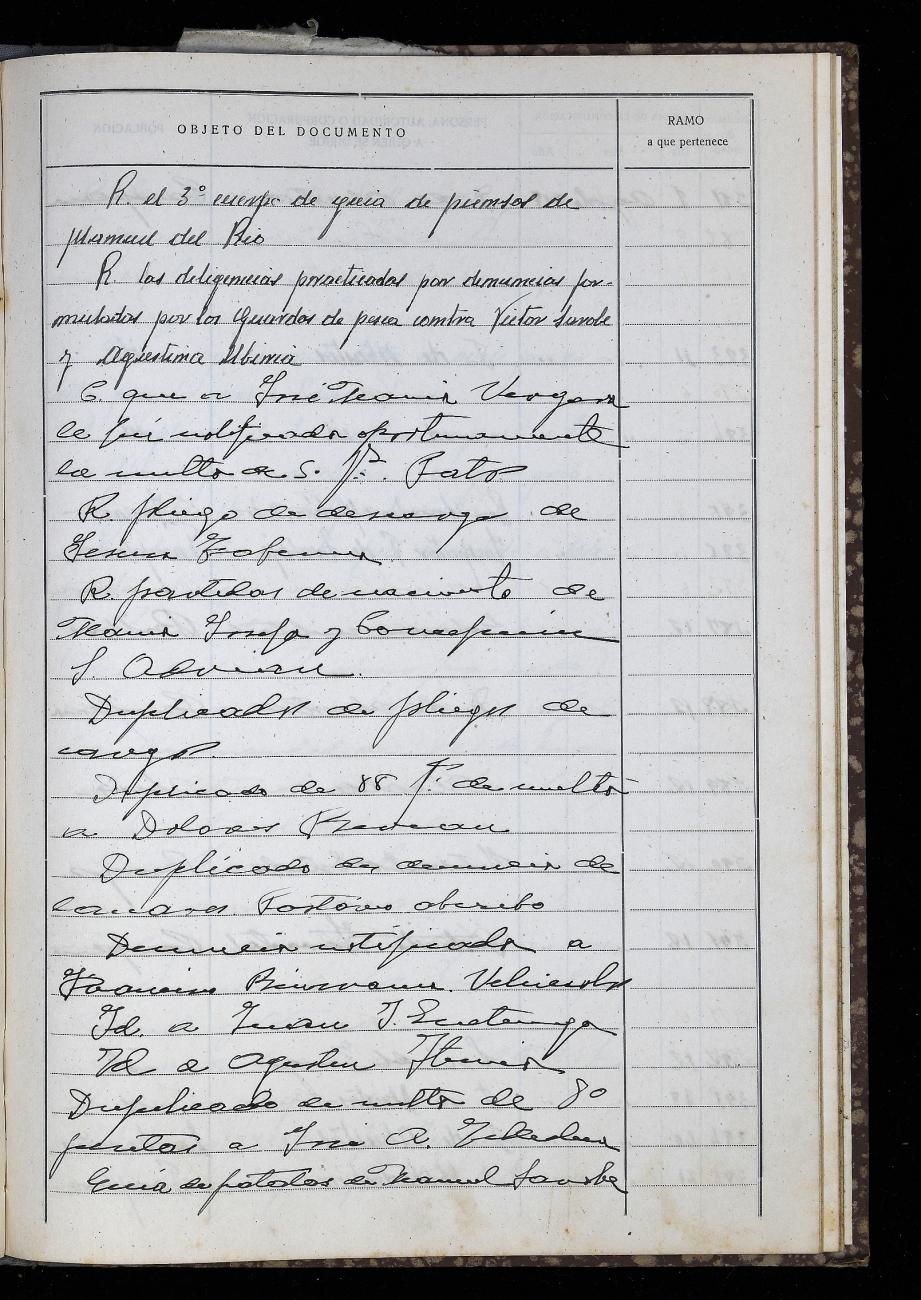 OBJETO DEL DOCUMENTO
RAMO
a que pertenece
R. el 3º cuerpo de guia de piensos de
Manuel del Rio
R. las diligencias practicadas por denuncias for-
muladas por los Guardas de pesca contra Victor Sarobe
y Agustina Ubiria
C. que a José Maria Vergara
le fué notificada oportunamente
la multa de S. Patos
R. pliego de descargo de
Jesus
R. partidas de nacimiento de
Maria Josefa y Concepción
S. Adrian.
Duplicados de pliegos de
cargos.
Duplicado de 88 p. de multa
a Dolores
Duplicado de denuncia de
Denuncia notificada a
Francisco Vehiculos
Id. a Juan J.
Id a Agustin
Duplicado de multa de 80
pesetas a José A.
Guia de patatas de Manuel Sarobe